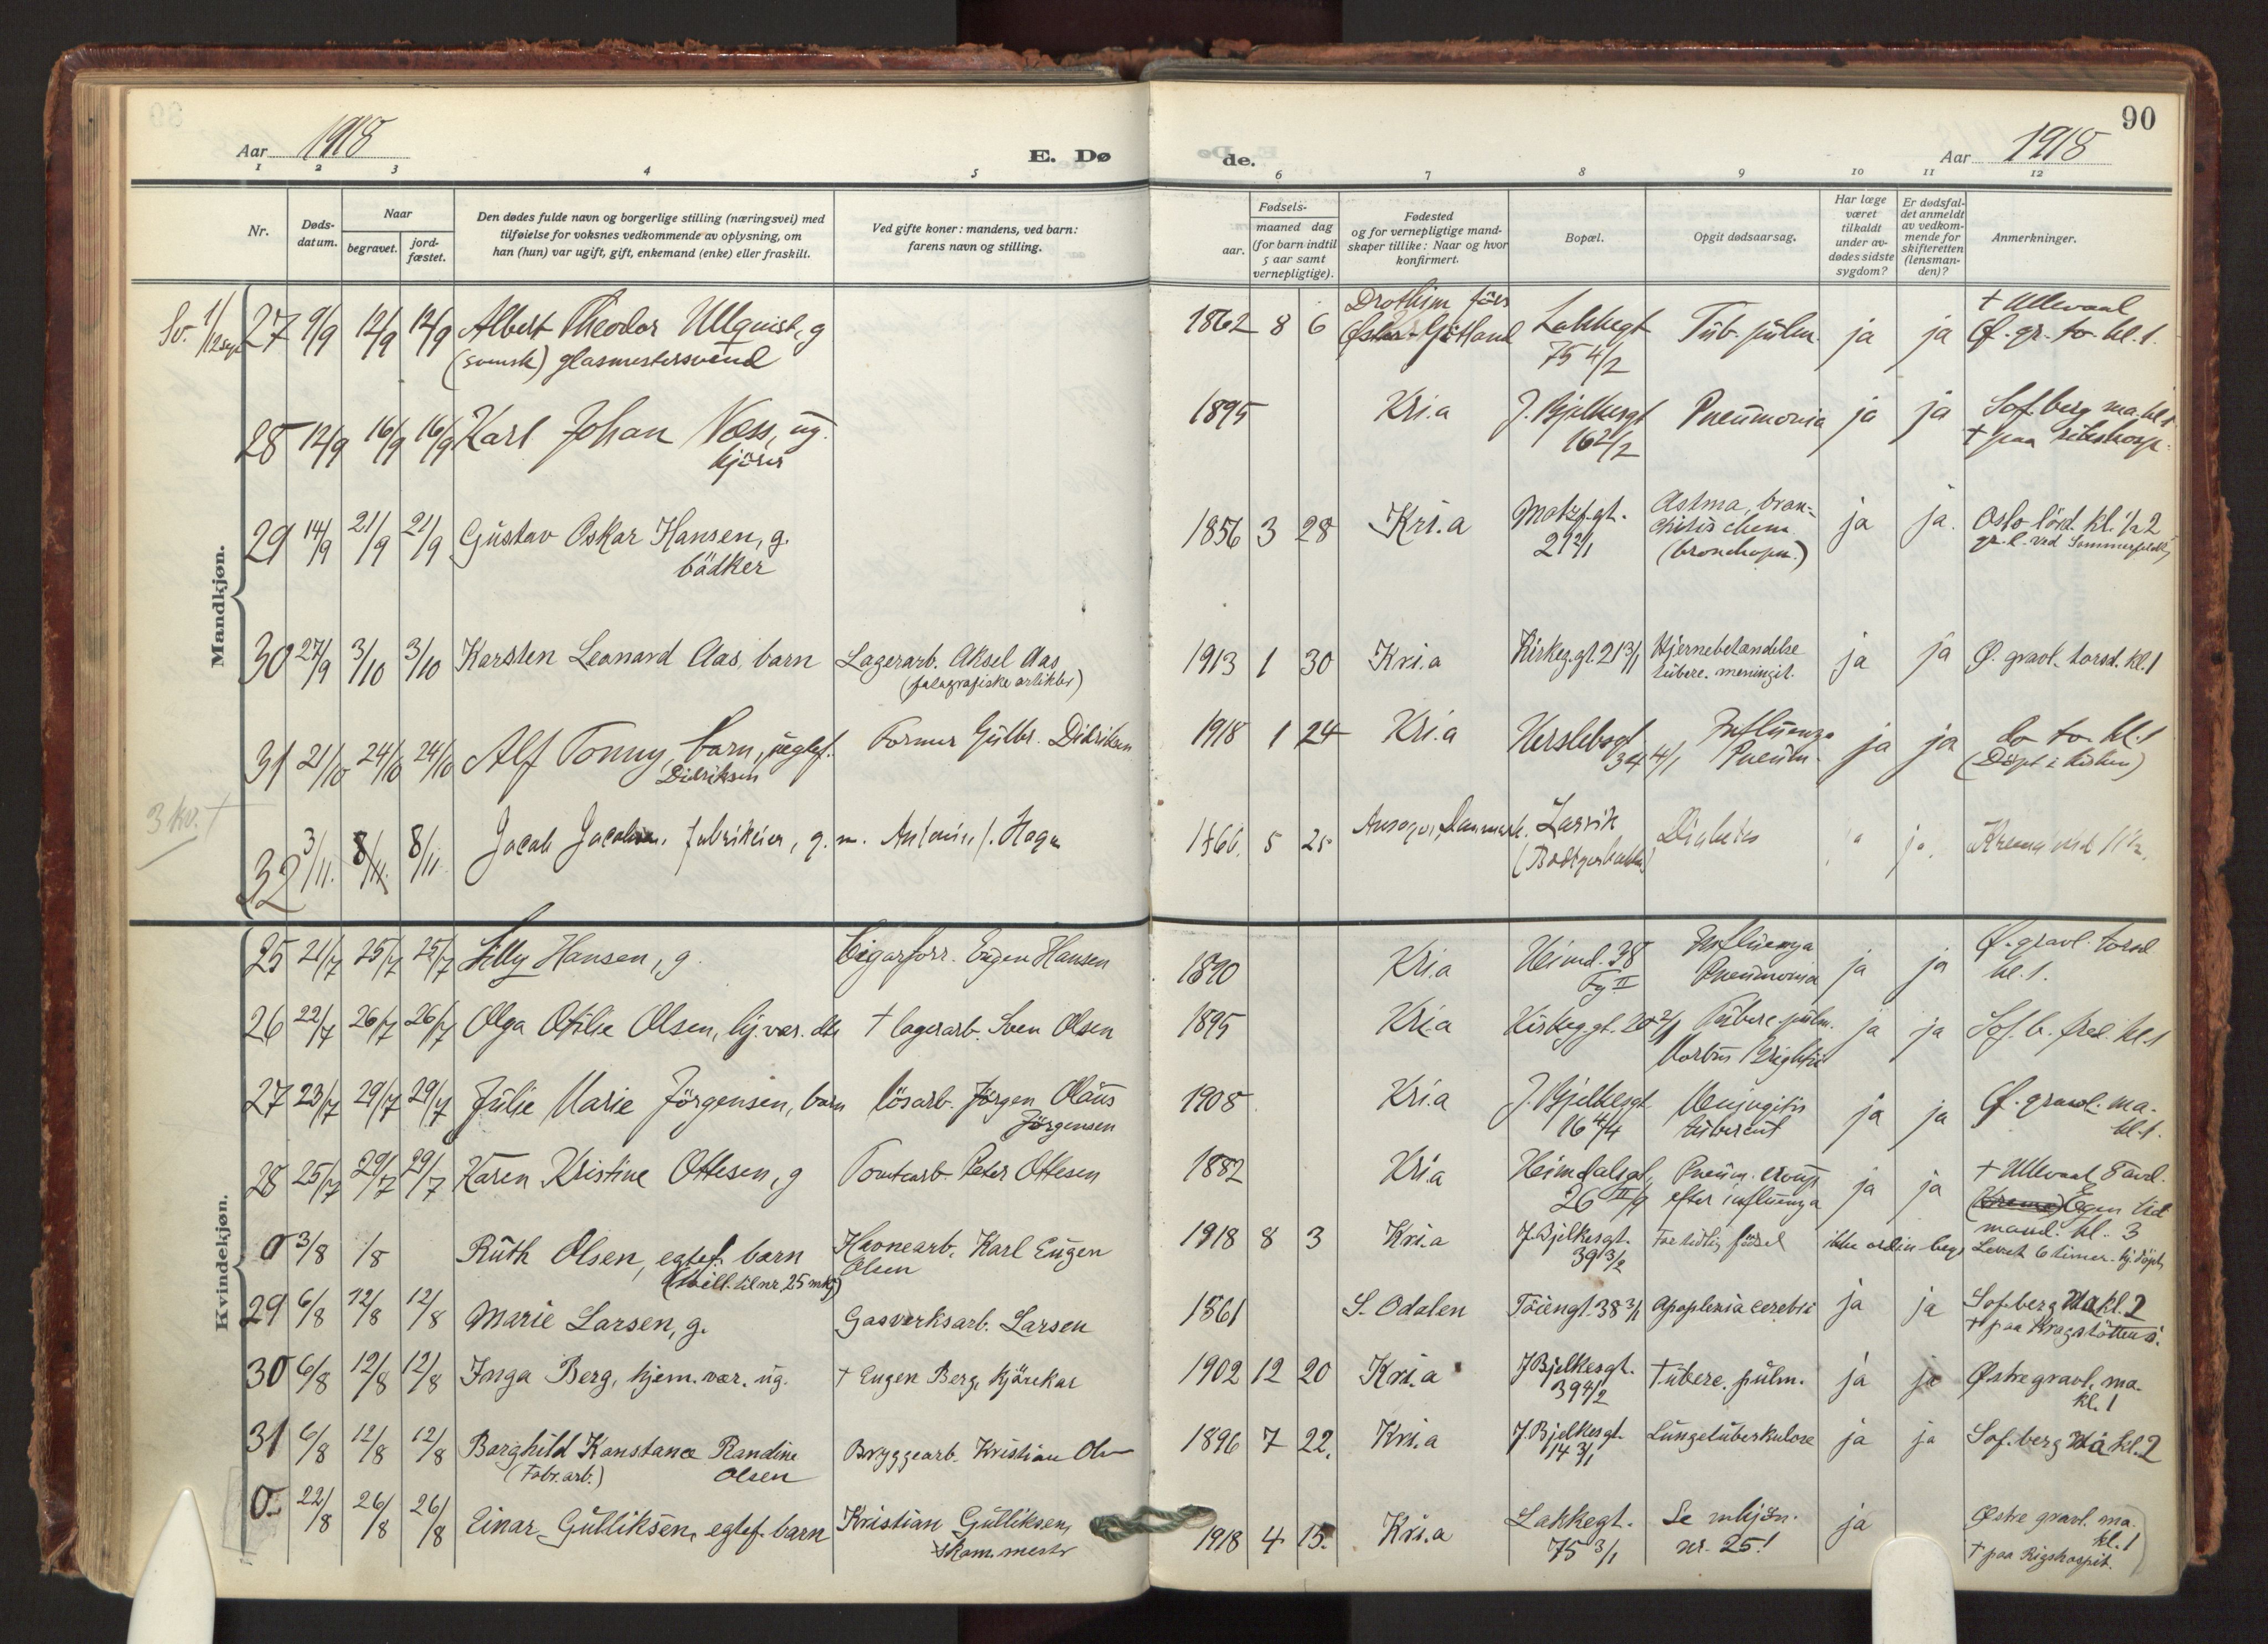 90
Aar 1918
E. Dø
de.
Aar 1918
1 2 3 4 5 6 7 8 9 10 11 12
Nr.
Døds-
datum.
Naar
begravet.
jord-
fæstet.
Den dødes fulde navn og borgerlige stilling (næringsvei) med
tilføielse for voksnes vedkommende av oplysning, om
han (hun) var ugift, gift, enkemand (enke) eller fraskilt.
Ved gifte koner: mandens, ved barn:
farens navn og stilling.
Fødsels-
aar.
maaned dag
(for barn indtil
5 aar samt
vernepligtige).
Fødested
og for vernepligtige mand-
skaper tillike: Naar og hvor
konfirmert.
Bopæl.
Opgit dødsaarsag.
Har læge
været
tilkaldt
under av-
dødes sidste
sygdom?
Er dødsfal-
det anmeldt
av vedkom-
mende for
skifteretten
(lensman-
den)?
Anmerkninger.
Mandkjøn.
27 9/9 12/9 12/9 Albert Theodor Ullquist, g
(svensk) glasmestersvend
1862 8 6 Drothem
Øster-Gøtland Lakkegt
75 4/2 Tub. pulm. ja ja † Ullevaal
Ø. gr. to. kl. 1.
28 12/9 16/9 16/9 Karl Johan Næss, ug.
kjører
1895 Kri.a J. Bjelkesgt
16 2/2 Pneumonia ja ja Sof.berg ma. kl 1
† paa
29 14/9 21/9 21/9 Gustav Oskar Hansen, g.
bödker
1856 3 28 Kri.a Motzf.gt.
21 2/1 Astma, bron-
chitis chron.
(bronchopn.) ja ja. Oslo lörd. kl. 1/2 2
gr. l. ved
30 27/9 3/10 3/10 Karsten Leonard Aas, barn Lagerarb. Aksel Aas
1913 1 30 Kri.a Kirkeg.gt. 21 3/1 Hjernebetændelse
tuberc. meningit. ja ja Ø. gravl. torsd. kl. 1
31 21/10 24/10 24/10 Alf Tonny, barn, uegtef.
Didriksen Former Gulbr. Didriksen
1918 1 24 Kri.a Herslebsgt
34 4/1 Influenza
Pneum. ja ja do to. kl. 1
(Döpt i kirken)
3 kv. †
32 3/11. 8/11. 8/11 Jacob Jacobsen, fabrikeier, g. m.
1866. 5 25 Danmark. Larvik
Diabetes ja.
Kvindekjøn.
25 21/7 25/7 25/7 Lilly Hansen, g. Cigarforr. Eugen Hansen
1890 Kri.a Heimd. 38
II Influenza
Pneumonia ja ja Ø. gravl. torsd
kl. 1.
26 22/7 26/7 26/7 Olga Otilie Olsen, hj.vær. dtr † lagerarb. Sven Olsen
1895 Kri.a Kirkeg.gt. 20 2/1 Tuberc. pulm.
Morbus Brightii ja ja Sof. b. fred. kl. 1
27 23/7 29/7 29/7 Julie Marie Jörgensen, barn lösarb. Jörgen Olaus
Jörgensen
1908 Kri.a J. Bjelkesgt
16 4/4 Meningitis
tubercut ja ja Ø. gravl. ma.
kl. 1.
28 25/7 29/7 29/7 Karen Kristine Ottesen, g Tomtearb. Peter Ottesen
1882 Kri.a Heimdalsgt.
26 II/4 Pneum. croup.
efter influenza ja ja † Ullevaal 8 avd.
Egen tid
mand. kl. 3
0 3/8 /8 Ruth Olsen, egtef. barn
(tvill. til nr. 25 mkj) Havnearb. Karl Eugen
Olsen
1918 8 3 Kri.a J. Bjelkesgt.
39 3/2 For tidlig födsel ikke ordin. begr Levet 6 timer. hj.döpt
29 6/8 12/8 12/8 Marie Larsen, g. Gasverksarb. Larsen
1861 S. Odalen Töiengt. 38 3/1 Apoplexia cerebri ja ja Sof.berg Ma kl. 2
† paa
30 6/8 12/8 12/8 Inga Berg, hjem. vær. ug. † Eugen Berg, kjörekar
1902 12 20 Kri.a J Bjelkesgt.
39 4/2 Tuberc. pulm. ja ja Østre gravl. ma.
kl. 1
31 6/8 12/8 12/8 Borghild Konstance Randine
(Fabr.arb.) Olsen Bryggearb. Kristian Ols
1896 7 22. Kri.a J. Bjelkesgt.
14 3/1 Lungetuberkulose ja ja Sof.berg Ma kl. 2
0 22/8 26/8 26/8 Einar Gulliksen, egtef. barn Kristian Gulliksen,
1918 4 15. Kri.a Lakkegt.
75 3/1 Se mkjön.
nr. 25! ja Østre gravl. ma.
kl. 1
† paa Rigshospit.